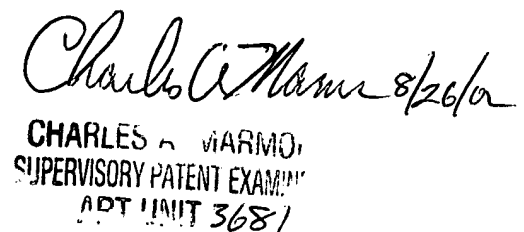 Charles A Marmor 8/26/02
CHARLES A MARMOR
SUPERVISORY PATENT EXAMINER
ART UNIT 3681